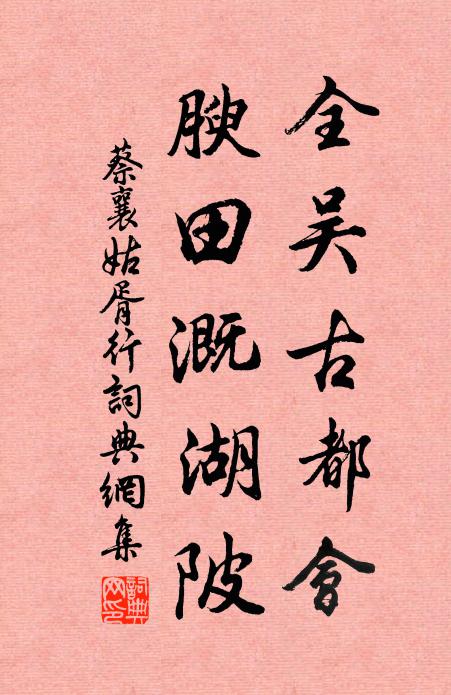 全吴古都會
腴田溉湖陂
蔡襄姑胥行詞典網集
詞典网印